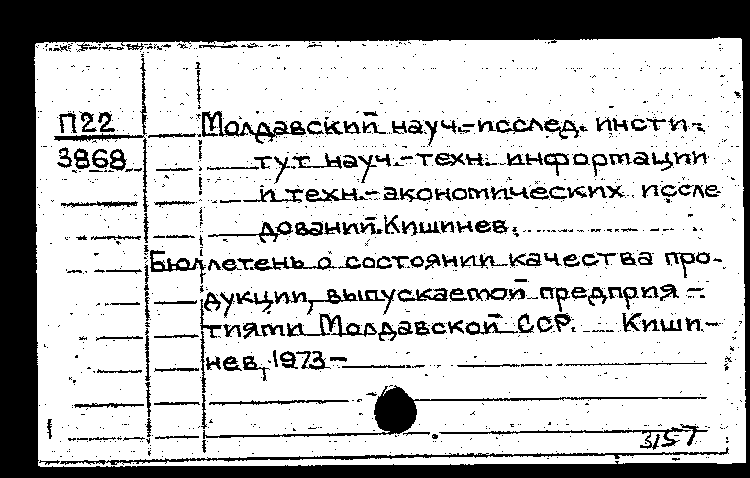 П22 Молдавский науч.-исслед. инсти-
3868 тут науч.-техн. информации
и техн.-экономических иссле
дований. Кишинев.
Бюллетень о состоянии качества про-
дукции, выпускаемой предприя-
тиями Молдавской ССР. Киши-
нев, 1973-
3157